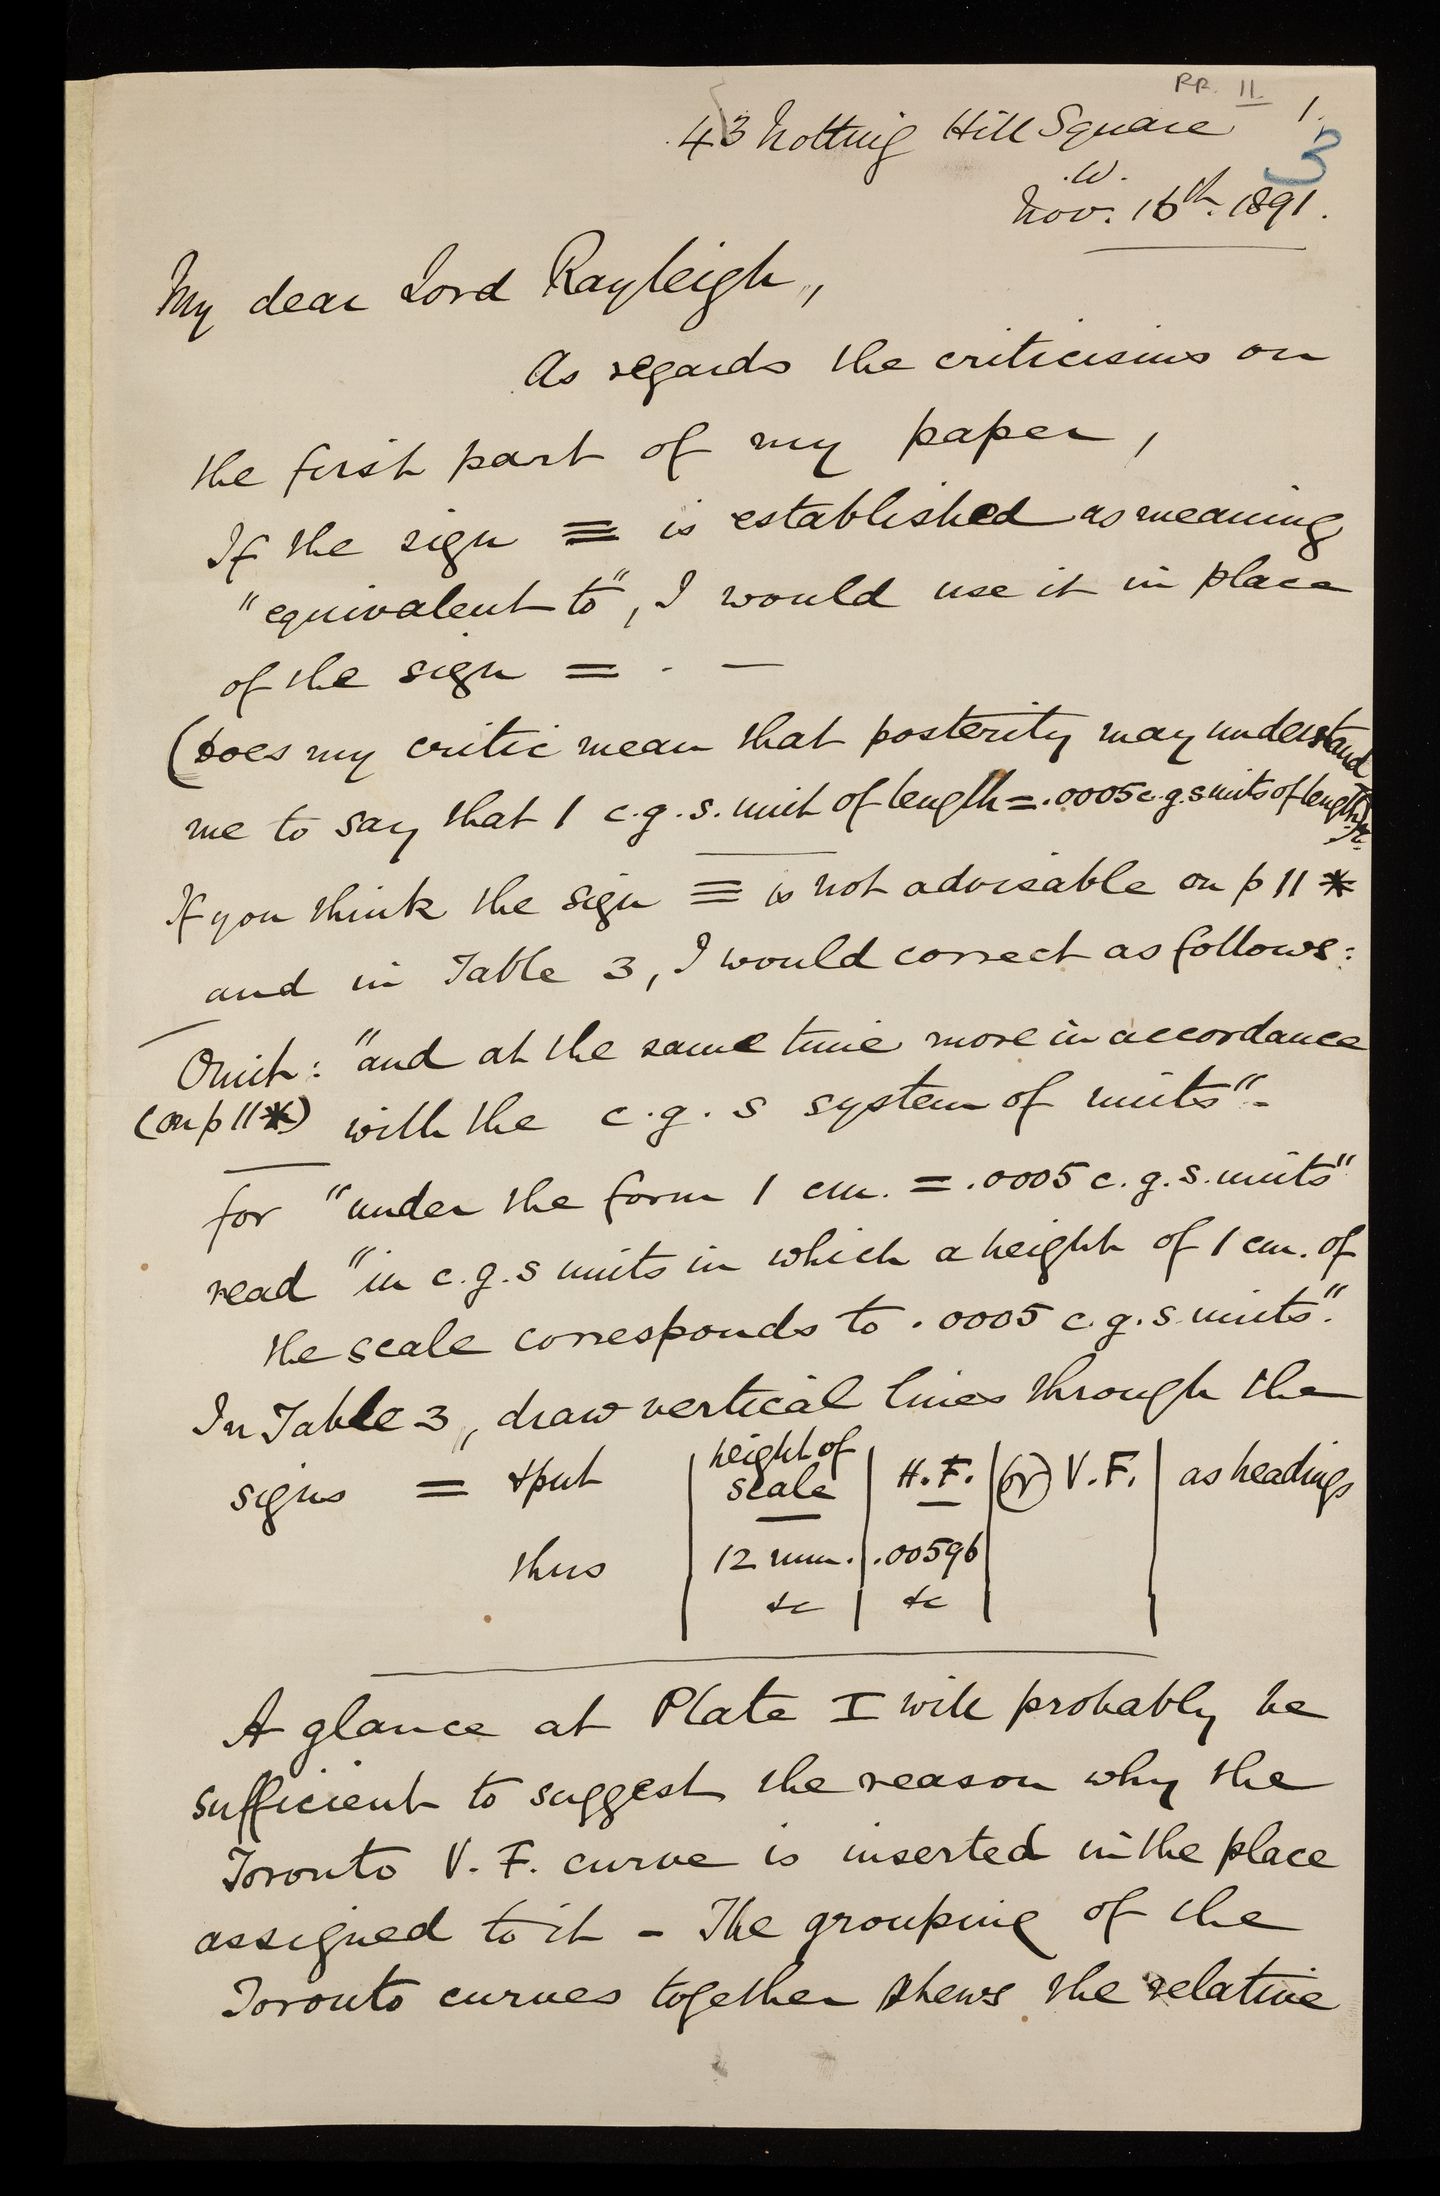 RR. II.
1.
43 Notting Hill Square
3
.W.
Nov. 16th. 1891.
My dear Lord Rayleigh,,
As regards the criticisms on
the first part of my paper,
If the sign ≡ is established as meaning
"equivalent to", I would use it in place
of the sign = . —
(Does my critic mean that posterity may understand
me to say that 1 c.g.s. unit of length = .0005 c.g.s units of length)?
If you think the sign ≡ is not advisable on p 11 *
and in Table 3, I would correct as follows:
Omit: "and at the same time more in accordance
(on p 11*) with the c.g.s system of units".
for "under the form 1 cm. = .0005 c.g.s. units"
read "in c.g.s units in which a height of 1 cm. of
the scale corresponds to .0005 c.g.s units".
In Table 3,, draw vertical lines through the
signs = & put | height of scale | H.F. | (or) V.F. | as headings
thus | 12 mm. | .00596 |
&c | &c |
A glance at Plate I will probably be
sufficient to suggest the reason why the
Toronto V.F. curve is inserted in the place
assigned to it – The grouping of the
Toronto curves together shews the relative